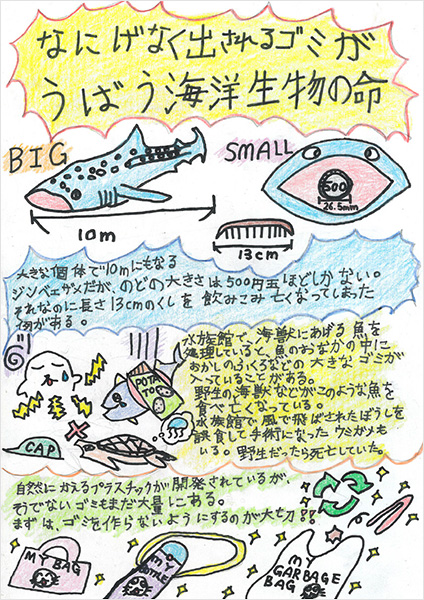 なにげなく出されるゴミが
うばう海洋生物の命
BIG
SMALL
500
26.5mm
10m
13cm
大きな個体で10mにもなる
ジンベエザメだが、のどの大きさは500円玉ほどしかない。
それなのに長さ13cmのくしを飲みこみ亡くなってしまった
例がある。
水族館で、海獣にあげる魚を
処理していると、魚のおなかの中に
おかしのふくろなどの大きなゴミが
入っていることがある。
野生の海獣などがこのような魚を
食べ亡くなっている。
水族館で風で飛ばされたぼうしを
誤食して手術になったウミガメも
いる。野生だったら死亡していた。
POTA
TO
CAP
自然にかえるプラスチックが開発されているが、
そうでないゴミもまだ大量にある。
まずは、ゴミを作らないようにするのが大切!!
MY
BAG
MY
BOTTLE
MY
GARBAGE
BAG